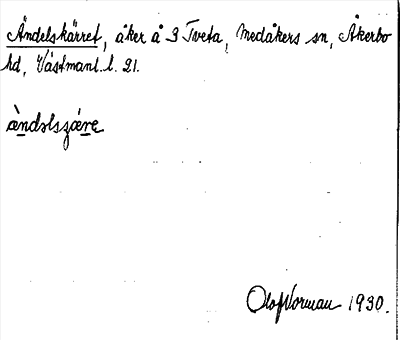 Ändelskärret, åker å 3 Tveta, Medåkers sn, Åkerbo
hd, Västmanl. l. 21.
Olof Norman 1930.